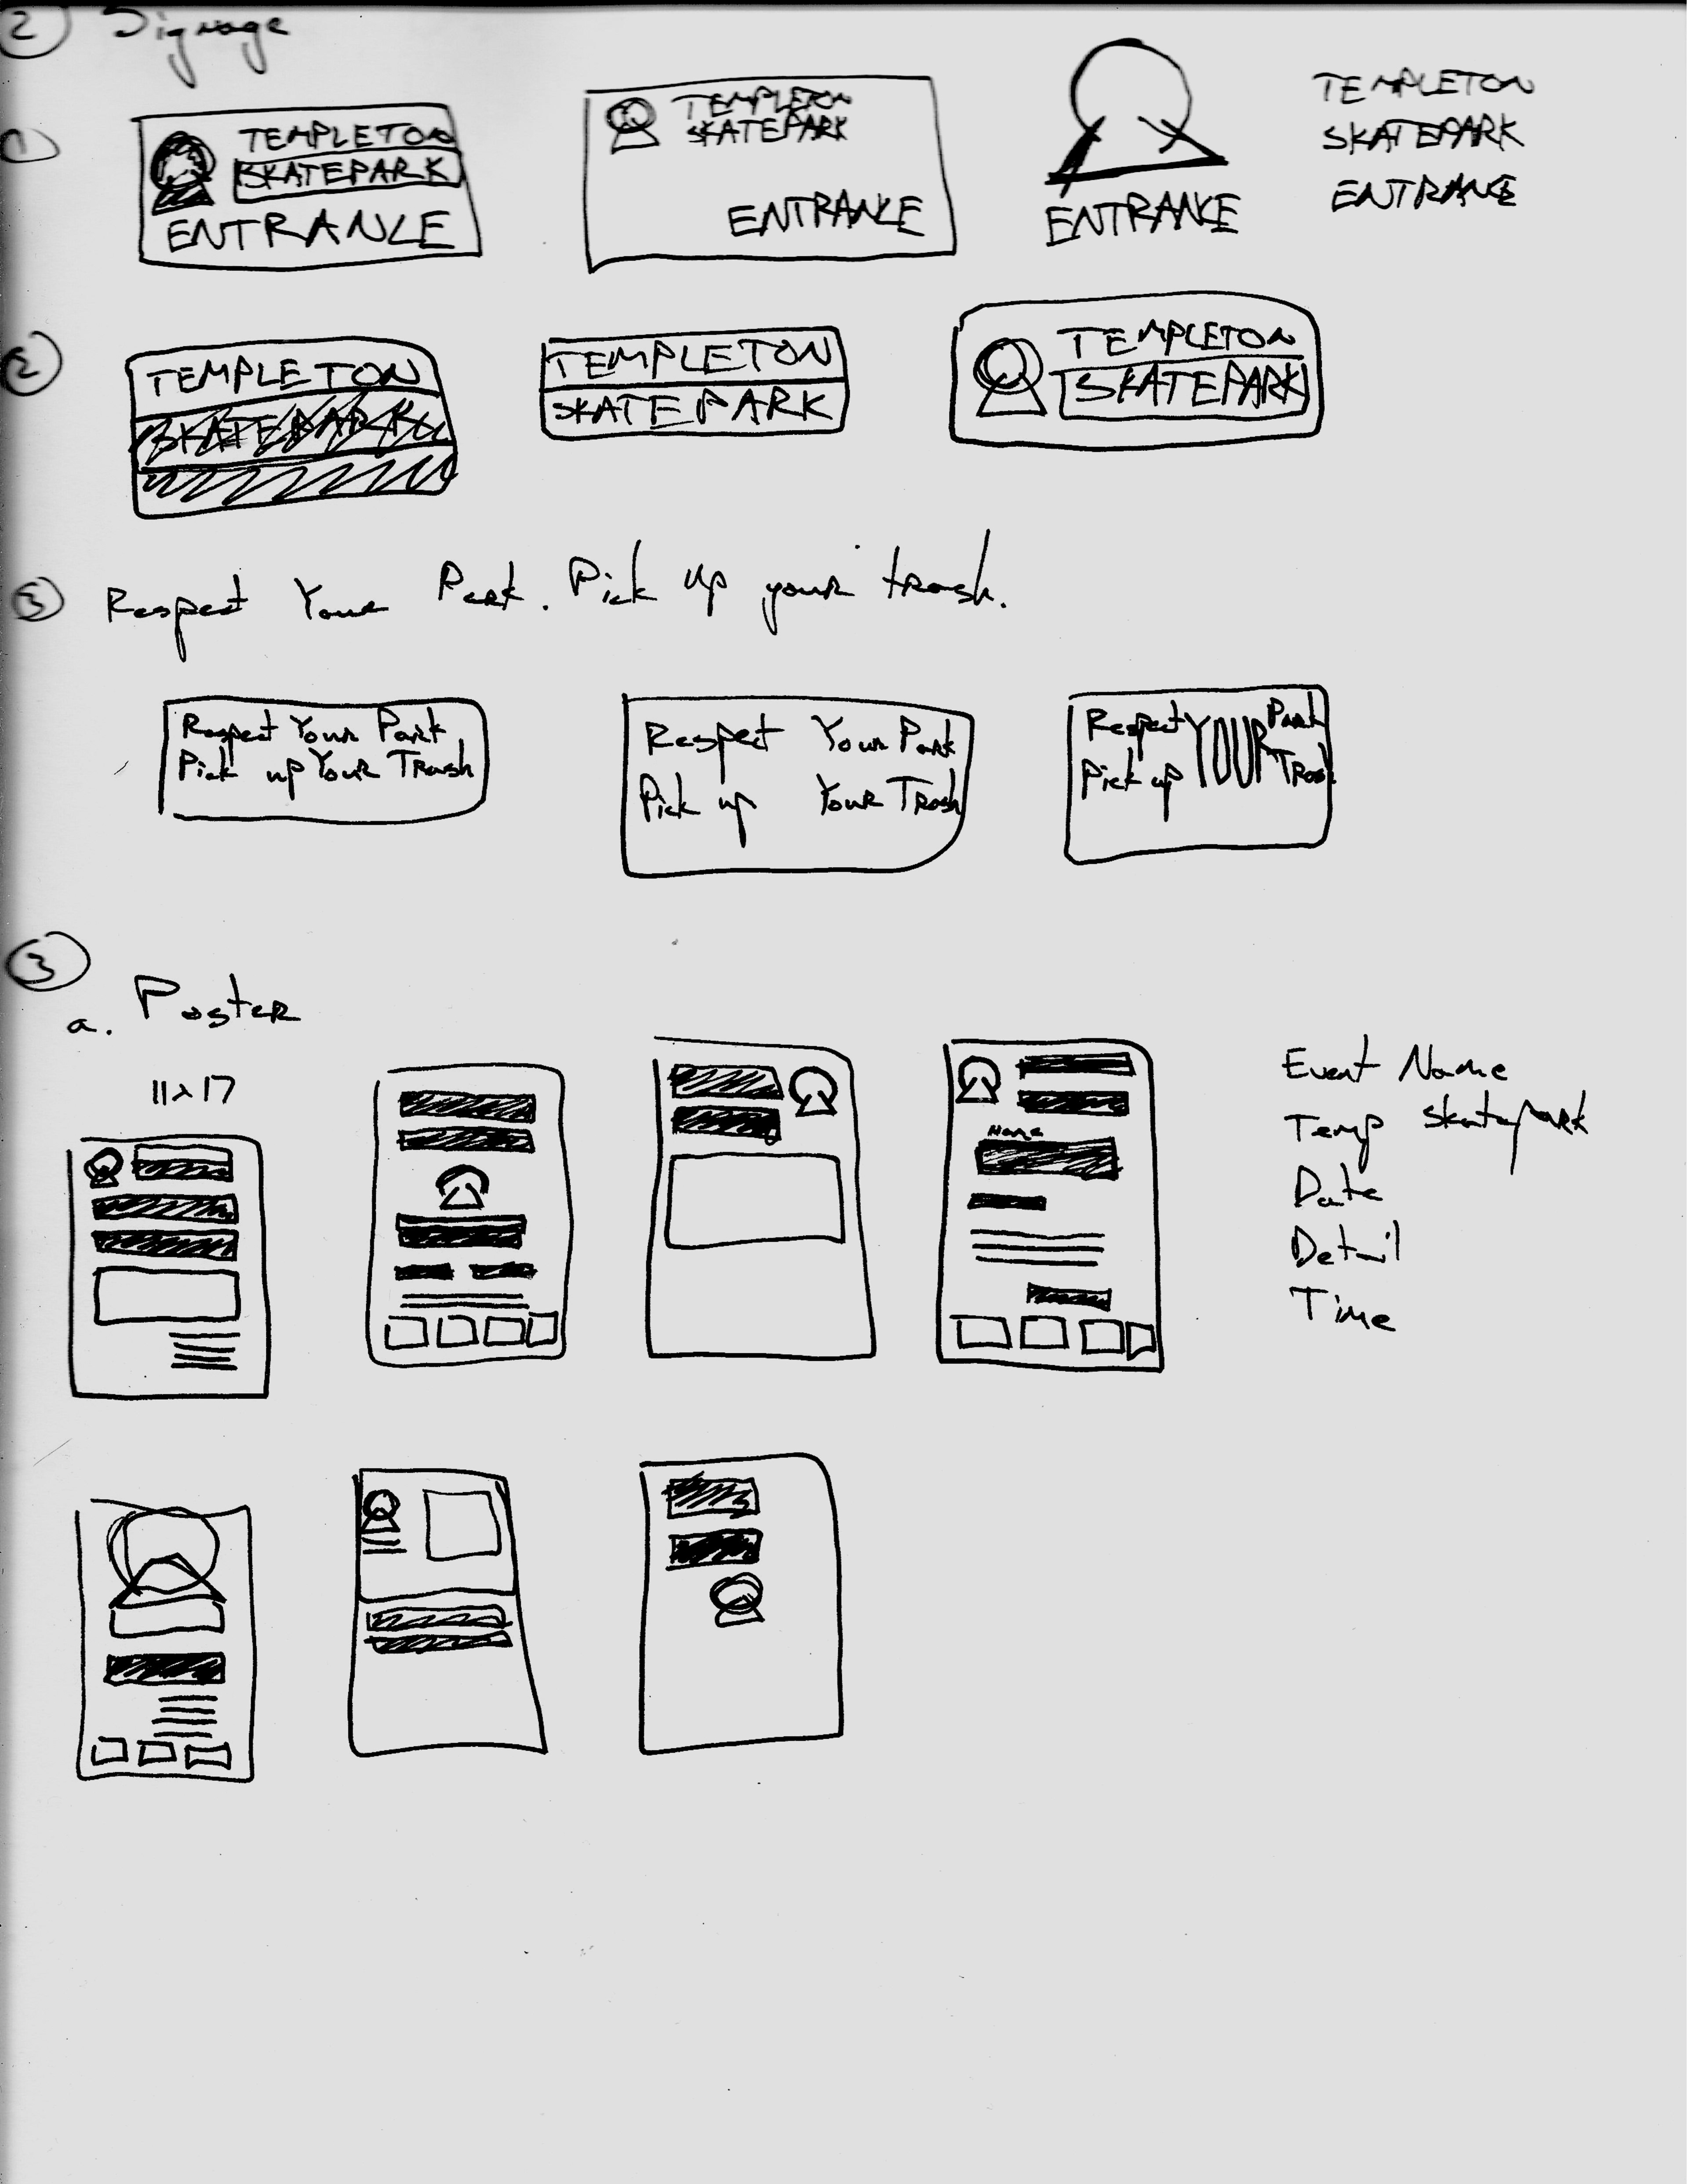 2 Signage
1
TEMPLETON
SKATEPARK
ENTRANCE
TEMPLETON
SKATEPARK
ENTRANCE
ENTRANCE
TEMPLETON
SKATEPARK
ENTRANCE
2
TEMPLETON
SKATEPARK
TEMPLETON
SKATEPARK
TEMPLETON
SKATEPARK
3 Respect Your Park. Pick up your trash.
Respect Your Park
Pick up Your Trash
Respect Your Park
Pick up Your Trash
Respect YOUR Park
Pick up Trash
3
a. Poster
11x17
Name
Event Name
Temp Skatepark
Date
Detail
Time